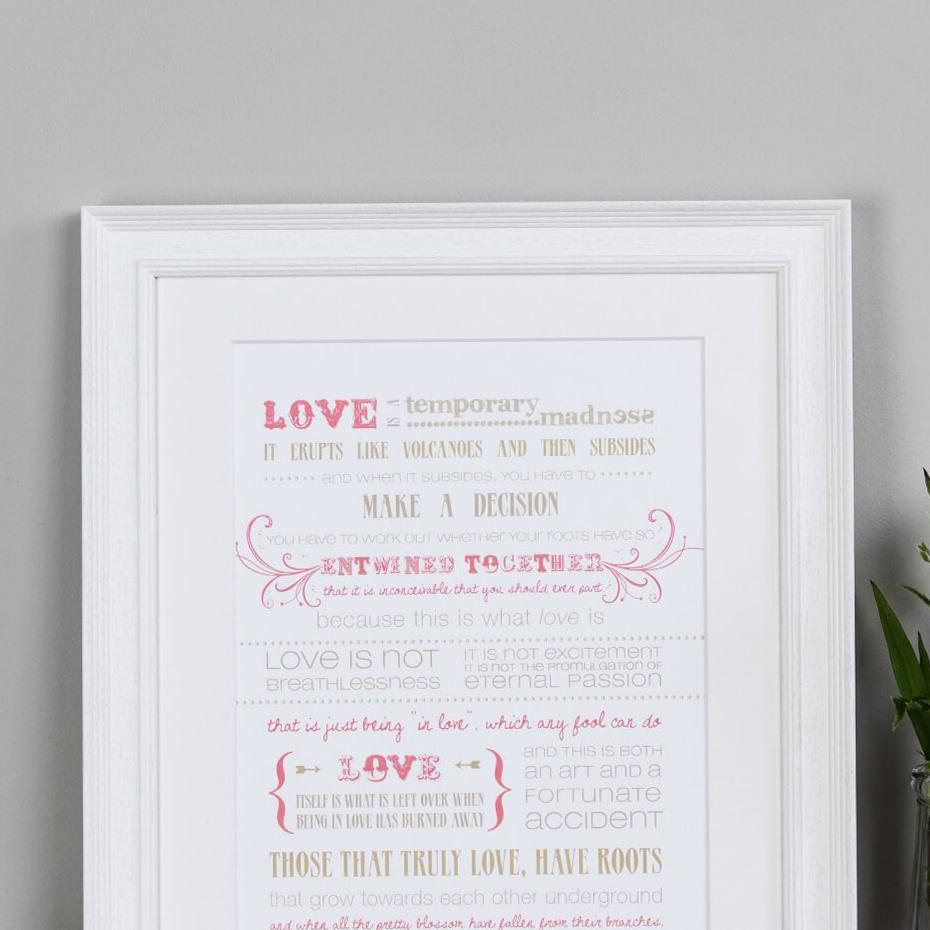 LOVE IS A temporary madness
IT ERUPTS LIKE VOLCANOES AND THEN SUBSIDES
AND WHEN IT SUBSIDES, YOU HAVE TO
MAKE A DECISION
YOU HAVE TO WORK OUT WHETHER YOUR ROOTS HAVE SO
ENTWINED TOGETHER
that it is inconceivable that you should ever part.
because this is what love is
LOVE IS NOT
BREATHLESSNESS
IT IS NOT EXCITEMENT
IT IS NOT THE PROMULGATION OF
ETERNAL PASSION
that is just being "in love", which any fool can do
LOVE
ITSELF IS WHAT IS LEFT OVER WHEN
BEING IN LOVE HAS BURNED AWAY
AND THIS IS BOTH
AN ART AND A
FORTUNATE
ACCIDENT
THOSE THAT TRULY LOVE, HAVE ROOTS
that grow towards each other underground
and when all the pretty blossom have fallen from their branches,